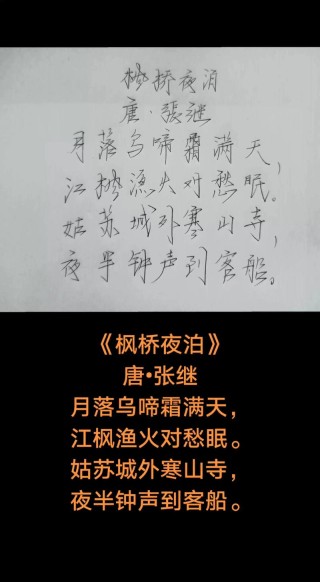 枫桥夜泊
唐·張继
月落乌啼霜满天，
江枫渔火对愁眠。
姑苏城外寒山寺，
夜半钟声到客船。
《枫桥夜泊》
唐•张继
月落乌啼霜满天，
江枫渔火对愁眠。
姑苏城外寒山寺，
夜半钟声到客船。